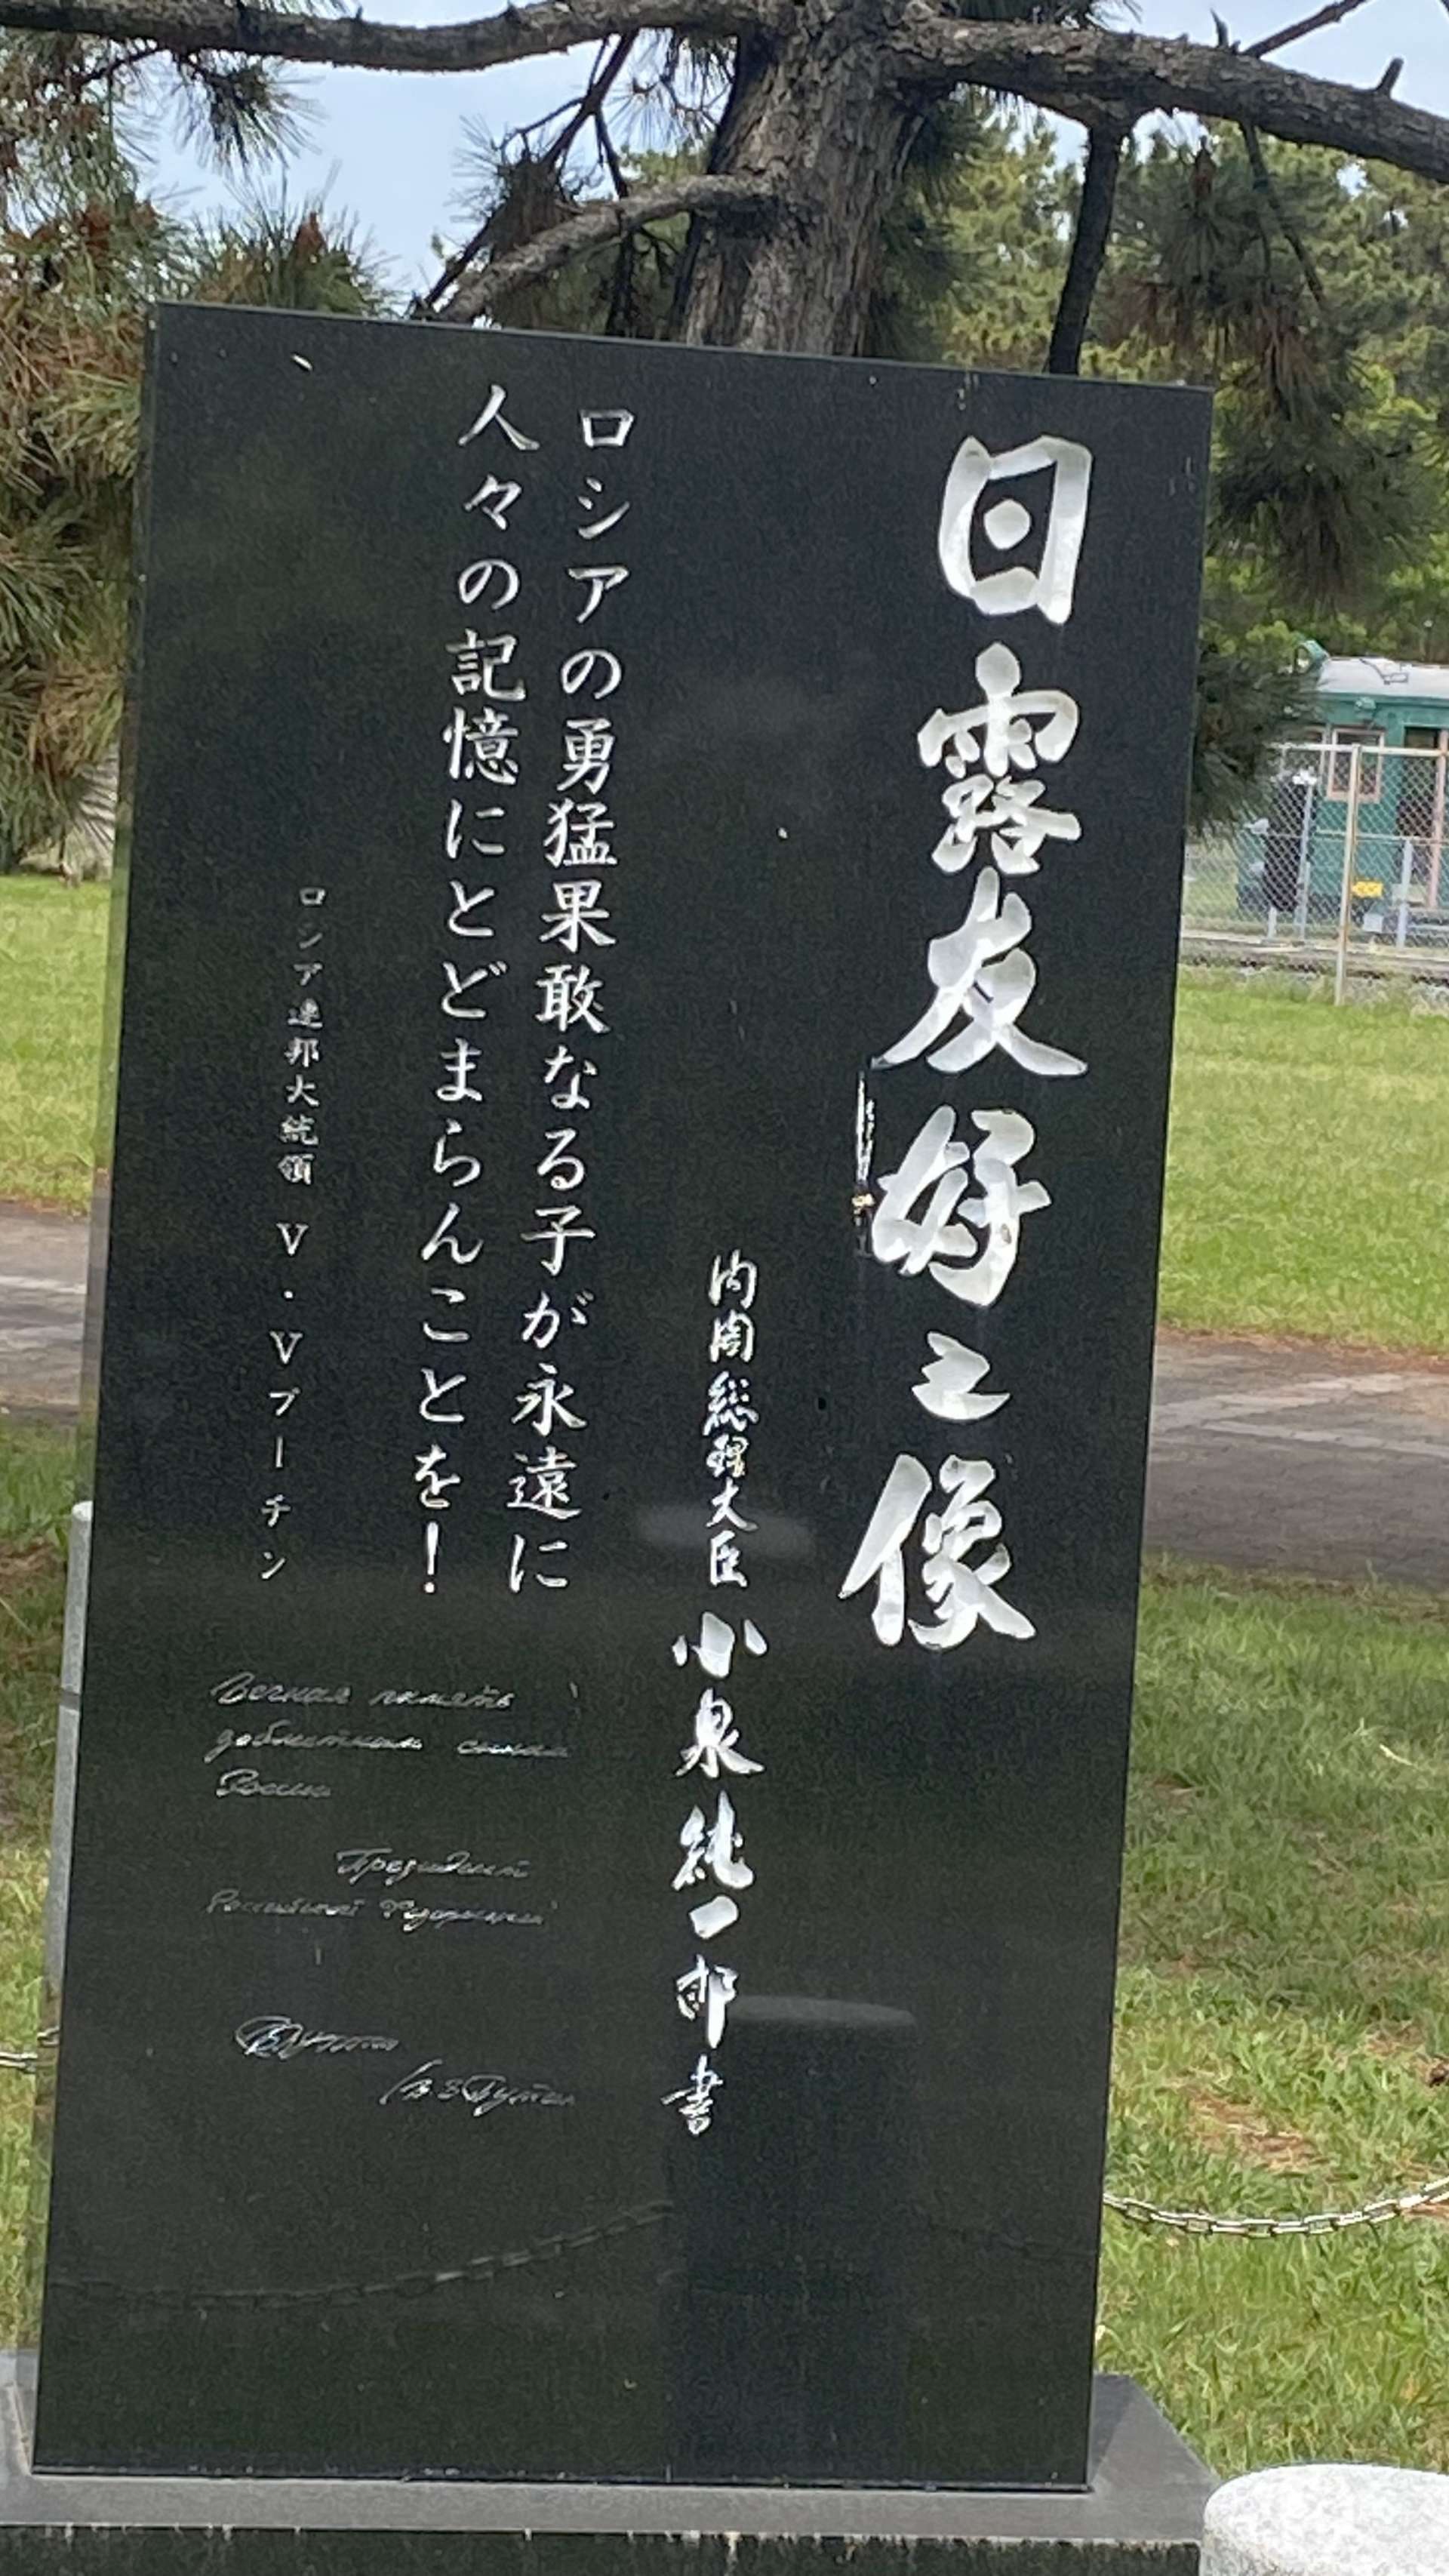 日露友好之像
内閣総理大臣 小泉純一郎書
ロシアの勇猛果敢なる子が永遠に
人々の記憶にとどまらんことを！
ロシア連邦大統領 V・Vプーチン
Вечная память
доблестным сынам
России
Президент
Российской Федерации
В.В.Путин